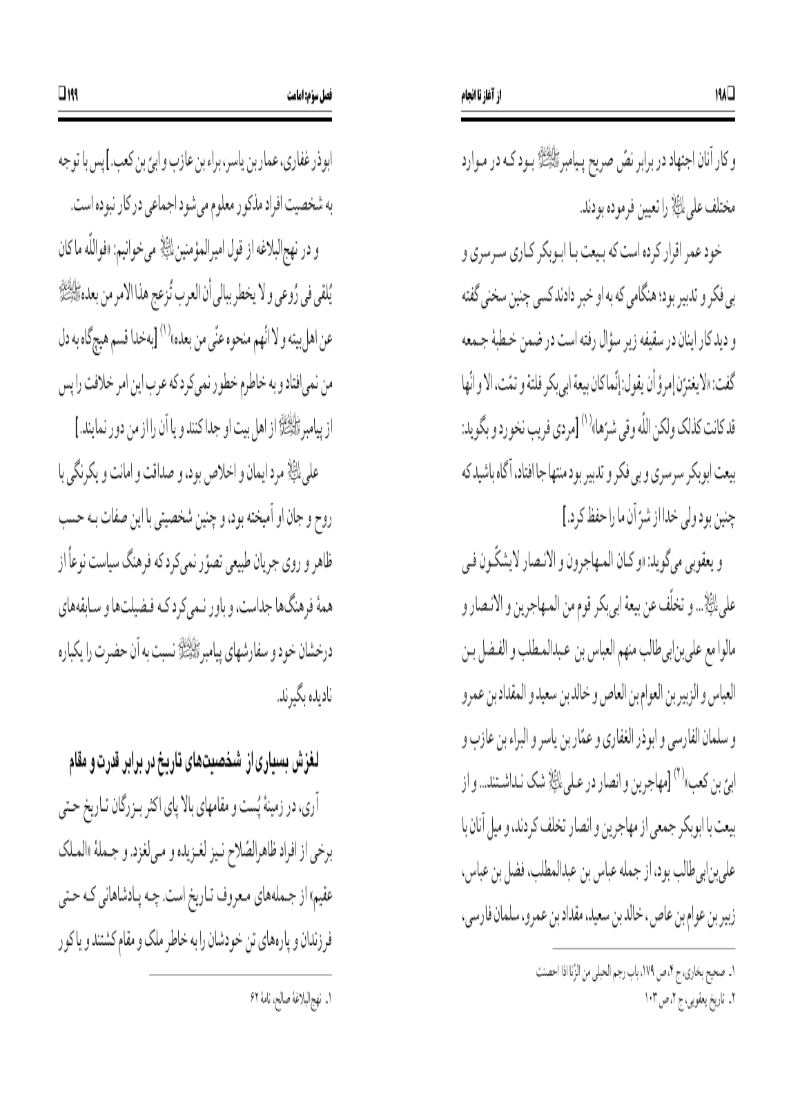 ❑ ۱۹۸ از آغاز تا انجام
و کار آنان اجتهاد در برابر نصّ صریح پیامبرﷺ بود که در موارد
مختلف علی‌علیه‌السلام را تعیین فرموده بودند.
خود عمر اقرار کرده است که بیعت با ابوبکر کاری سرسری و
بی فکر و تدبیر بود؛ هنگامی که به او خبر دادند کسی چنین سخنی گفته
و دید کار اینان در سقیفه زیر سؤال رفته است در ضمن خطبۀ جمعه
گفت: «لایغترّن إمرؤ أن یقول: إنّما کان بیعة ابی‌بکر فلتة و تمّت، الا و انّها
قد کانت کذلک ولکن اللّه وقی شرّها»(۱) [مردی فریب نخورد و بگوید:
بیعت ابوبکر سرسری و بی فکر و تدبیر بود منتها جا افتاد، آگاه باشید که
چنین بود ولی خدا از شرّ آن ما را حفظ کرد.]
و یعقوبی می‌گوید: «و کان المهاجرون و الانصار لایشکّون فی
علی‌علیه‌السلام... و تخلّف عن بیعة ابی‌بکر قوم من المهاجرین و الانصار و
مالوا مع علی‌بن‌ابی‌طالب منهم العباس بن عبدالمطلب و الفضل بن
العباس و الزبیر بن العوام بن العاص و خالد بن سعید و المقداد بن عمرو
و سلمان الفارسی و ابوذر الغفاری و عمّار بن یاسر و البراء بن عازب و
ابیّ بن کعب»(۲) [مهاجرین و انصار در علی‌علیه‌السلام شک نداشتند... و از
بیعت با ابوبکر جمعی از مهاجرین و انصار تخلف کردند، و میل آنان با
علی‌بن‌ابی‌طالب بود، از جمله عباس بن عبدالمطلب، فضل بن عباس،
زبیر بن عوام بن عاص، خالد بن سعید، مقداد بن عمرو، سلمان فارسی،
۱ـ صحیح بخاری، ج ۴، ص ۱۷۹، باب رجم الحبلی من الزّنا اذا احصنت
۲ـ تاریخ یعقوبی، ج ۲، ص ۱۰۳
فصل سوّم: امامت ۱۹۹ ❑
ابوذر غفاری، عمار بن یاسر، براء بن عازب و ابیّ بن کعب.] پس با توجه
به شخصیت افراد مذکور معلوم می‌شود اجماعی در کار نبوده است.
و در نهج‌البلاغه از قول امیرالمؤمنین‌علیه‌السلام می‌خوانیم: «فواللّه ما کان
یُلقی فی رُوعی و لا یخطر ببالی أن العرب تُزعج هذا الامر من بعدهﷺ
عن اهل‌بیته و لا انّهم منحوه عنّی من بعده»(۱) [به‌خدا قسم هیچ‌گاه به دل
من نمی‌افتاد و به خاطرم خطور نمی‌کرد که عرب این امر خلافت را پس
از پیامبرﷺ از اهل بیت او جدا کنند و یا آن را از من دور نمایند.]
علی‌علیه‌السلام مرد ایمان و اخلاص بود، و صداقت و امانت و یکرنگی با
روح و جان او آمیخته بود، و چنین شخصیتی با این صفات به حسب
ظاهر و روی جریان طبیعی تصوّر نمی‌کرد که فرهنگ سیاست نوعاً از
همۀ فرهنگ‌ها جداست، و باور نمی‌کرد که فضیلت‌ها و سابقه‌های
درخشان خود و سفارشهای پیامبرﷺ نسبت به آن حضرت را یکباره
نادیده بگیرند.
لغزش بسیاری از شخصیت‌های تاریخ در برابر قدرت و مقام
آری، در زمینۀ پُست و مقامهای بالا پای اکثر بزرگان تاریخ حتی
برخی از افراد ظاهرالصّلاح نیز لغزیده و می‌لغزد. و جملۀ «الملک
عقیم» از جمله‌های معروف تاریخ است. چه پادشاهانی که حتی
فرزندان و پاره‌های تن خودشان را به خاطر ملک و مقام کشتند و یا کور
۱ـ نهج‌البلاغۀ صالح، نامۀ ۶۲